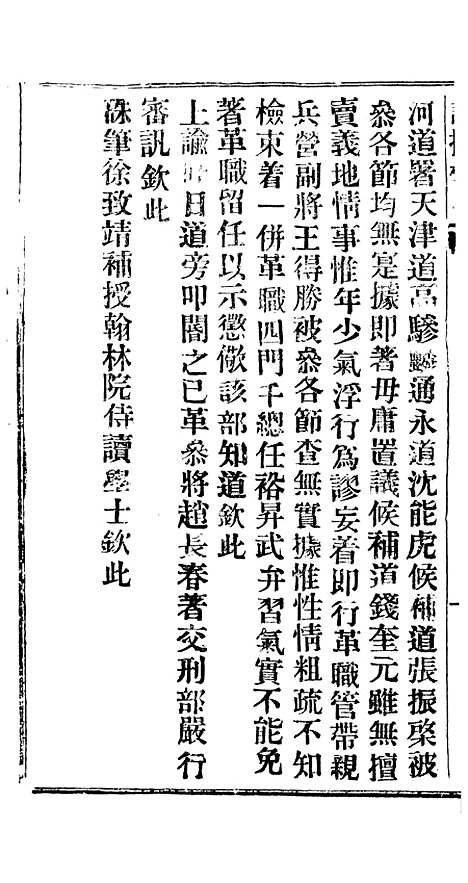 河道署天津道高驂麟通永道沈能虎候補道張振棨被
叅各節均無寔據即著毋庸置議候補道錢奎元雖無擅
賣義地情事惟年少氣浮行為謬妄着即行革職管帶親
兵營副將王得勝被叅各節查無實據惟性情粗疏不知
檢束着一併革職四門千總任裕昇武弁習氣實不能免
著革職留任以示懲儆該部知道欽此
上諭昨日道旁叩閽之已革叅將趙長春著交刑部嚴行
審訊欽此
硃筆徐致靖補授翰林院侍讀學士欽此